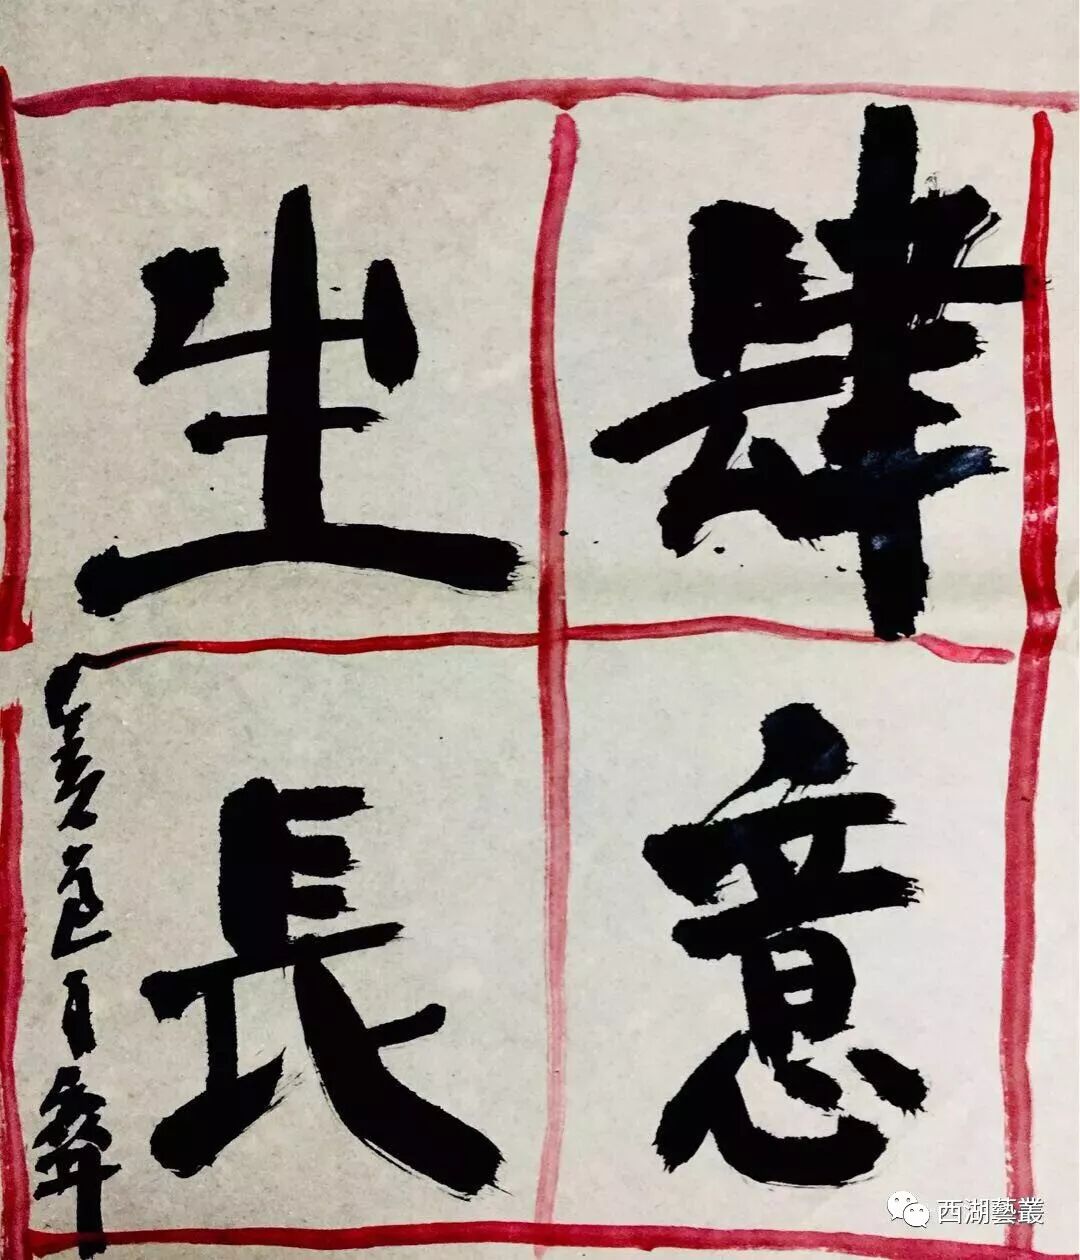 肆意
生長
西湖藝叢